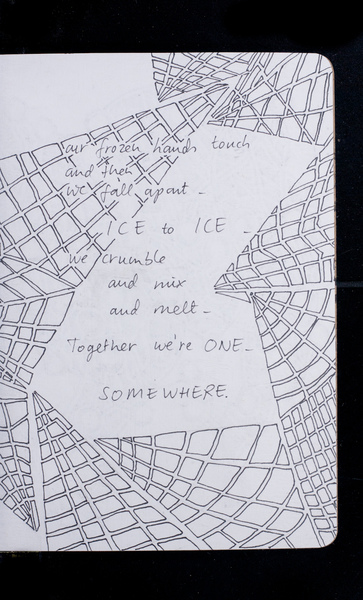 our frozen hands touch
and then
we fall apart -
ICE to ICE -
We crumble
and mix
and melt -
Together we're ONE -
SOMEWHERE.